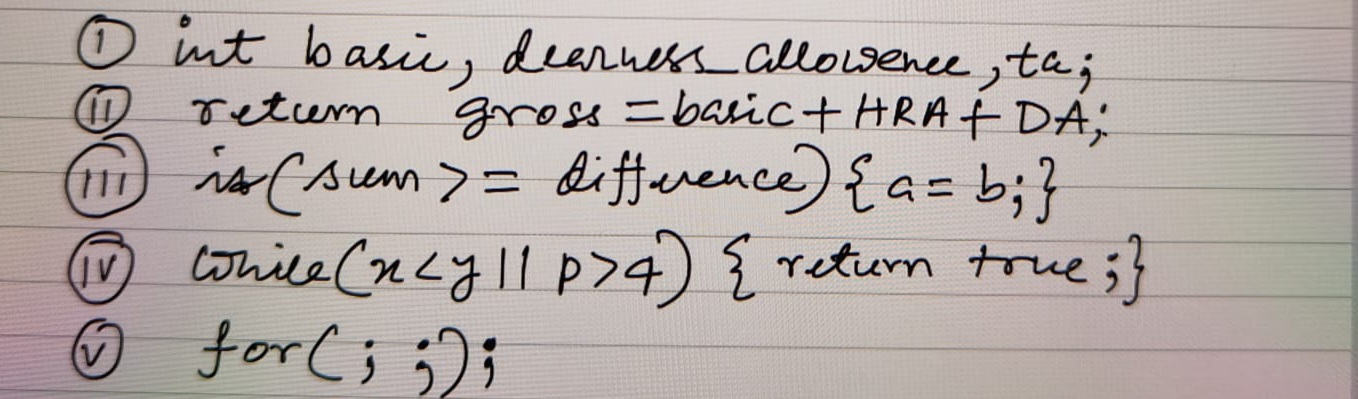 (i) int basic, dearness_allowence, ta;
(ii) return gross = basic + HRA + DA;
(iii) is(sum >= difference) { a = b; }
(iv) while(x<y || p>q) { return true; }
(v) for(; ;);